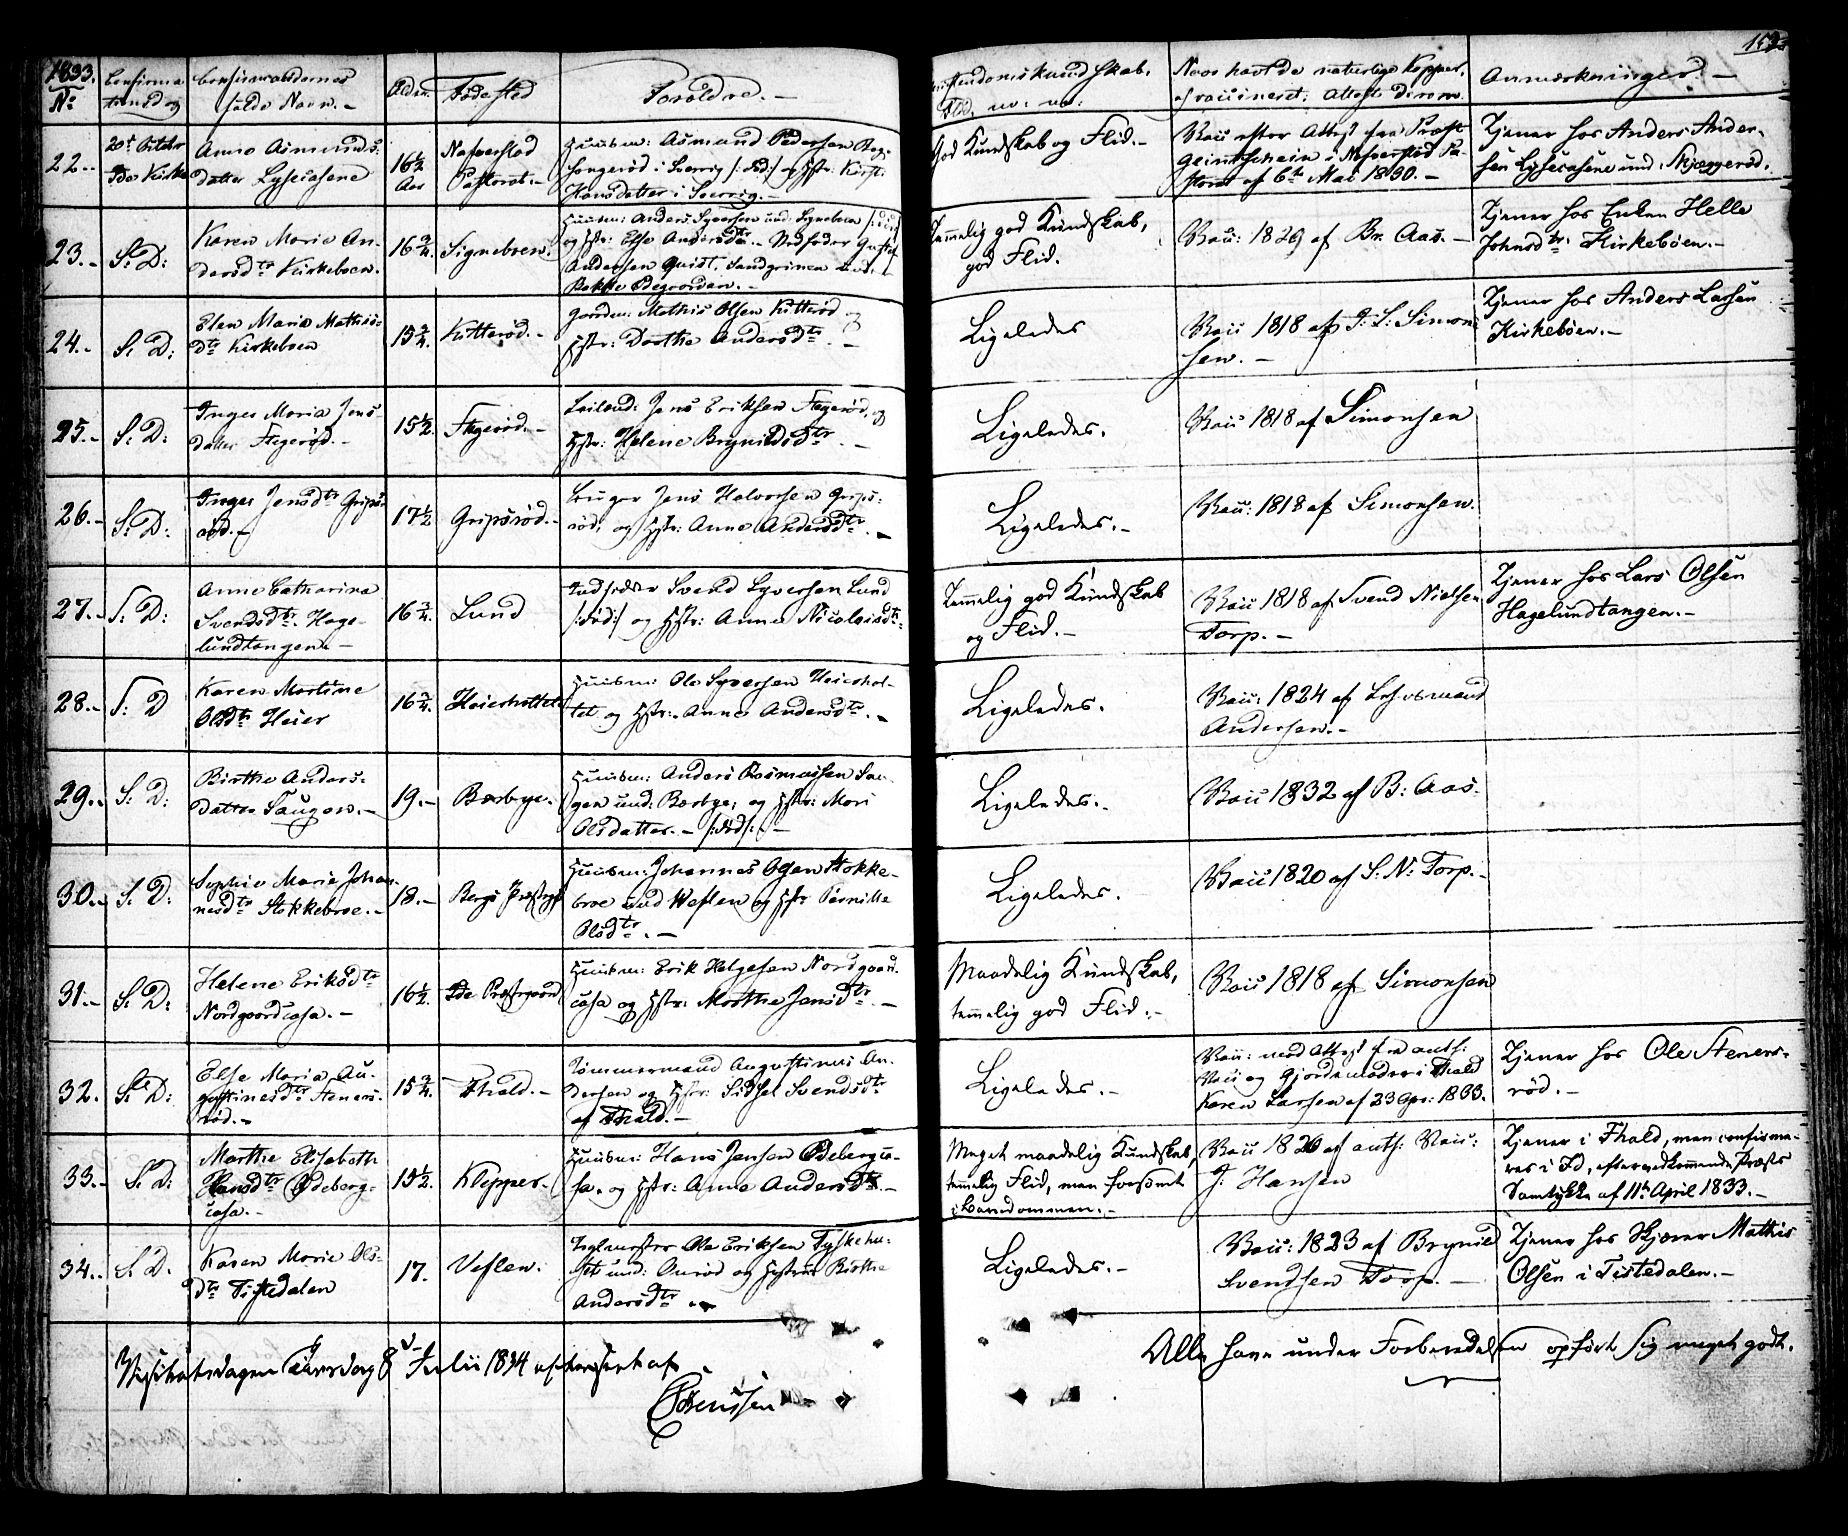 1833.
No
Confirma
tionsdag
Confirmandernes
fulde Navn. -
Alder.
Fødested
Forældre. -
Christendomskundskab,
Flid,
Naar havt de naturlige Kopper,
ell. vaccineret; Attest derom.
Anmærkninger. -
152
22.-
20de October
Ide Kirke
Anne Asmunds-
datter Lysecasene
16½
Aar
Næsverstad
Pastorat.-
Huusm: Asmund Pedersen
i Sverrig /:død:/ og Hstr: Kirsti
Hansdatter i Sverrig.-
God Kundskab og Flid.-
Vac: efter Attest fra Præst
Geimschein i Næsverstad Pa-
storat af 6te Mai 1830.-
Tjener hos Anders Ander-
sen Lysecasene und: Skjeggerød.
23.-
S: D:
Karen Marie An-
dersdtr Kirkebøen.
16¾
Signebøen.
Huusm: Anders Syversen und: Signebøen /:død:/
og Hstr: Else Andersdtr.- Stedfader Gustaf
Andersen Quist, Sandgrinen und:
Bakke Degaarden.-
Temmelig god Kundskab,
god Flid.
Vac: 1829 af Br. Aas.-
Tjener hos Enken Helle
Johnsdtr: Kirkebøen.-
24.-
S: D:
Elen Maria Mathis-
dtr Kirkebøen
15¾.
Kitterød.-
Gaardm: Mathis Olsen Kitterød og
Hstr: Dorthe Andersdtr.-
Ligeledes
Vac 1818 af J: S: Simon
sen.-
Tjener hos Anders Larsen
Kirkebøen.-
25.-
S: D:
Inger Maria Jens-
datter Fagerød.-
15½.
Fagerød.-
Leilænd: Jens Eriksen Fagerød, og
Hstr: Helene Brynildsdtr.-
Ligeledes.
Vac 1818 af Simonsen
26.-
S: D:
Inger Jensdtr Grips-
rød.-
17½
Gripsrød.-
Bruger Jens Halvorsen Grips-
rød, og Hstr: Anne Andersdtr.-
Ligeledes.-
Vac: 1818 af Simonsen.
27.-
S: D:
Anne Catharina
Svendsdtr. Hage-
lundtangen.-
16¾.
Lund
Indsidder Svend Syversen Lund
/:død:/ og Hstr: Anne Nicolaisdtr:
Temmelig god Kundskab
og Flid.-
Vac 1818 af Svend Nielsen
Torp.-
Tjener hos Lars Olsen
Hagelundtangen.-
28.-
S: D
Karen Martine
Olsdtr Heier
16¾.
Heierholtet
Huusm: Ole Syversen Heierhol-
tet og Hstr: Anne Andersdtr.-
Ligeledes.
Vac: 1824 af
Andersen.-
29.-
S: D:
Birthe Anders-
datter Saugen.-
19.-
Bærbye.
Huusm: Anders Rasmussen Sau-
gen und: Bærbye, og Hstr: Mari
Olsdatter.- /:død:/-
Ligeledes.-
Vac 1832 af B: Aas.
30.-
S: D:
Sophie Marie Johan
nesdtr Stokkebroe.-
18.-
Bergs Præstegjd
Huusm: Johannes Olsen Stokke-
broe und Veflen og Hstr Pernille
Olsdtr.-
Ligeledes.
Vac 1820 af S: N: Torp.-
31.-
S: D:
Helene Eriksdtr
Nordgaardcasa.-
16½.
Ide Præstegaard
Huusm: Erik Helgesen Nordgaard
casa og Hstr: Marthe Jensdtr.-
Maadelig Kundskab,
temmelig god Flid.-
Vac 1818 af Simonsen
32.
S: D:
Else Maria Au-
gustinesdtr Steners-
rød.-
15¾.
Thald.-
Tømmermand Augustinus An-
dersen og Hstr: Sidsel Svendsdtr
af Thald.-
Ligeledes.-
Vac: med Attest fra auth:
Vac og Gjordemoder i Thald
Karen Larsen af 23 Apr: 1833.
Tjener hos Ole Steners-
rød.-
33.-
S: D:
Marthe Elisabeth
Hansdtr Ødeberg-
casa.-
15½.
Klepper.-
Huusm: Hans Jensen Ødebergca-
sa, og Hstr: Anne Andersdtr.-
Meget maadelig Kundskab,
temmelig Flid, men forsømt
i Barndommen.-
Vac 1826 af auth: Vac:
J: Hansen
Tjener i Thald, men confirme-
res i Id, efter vedkommende Præsts
Samtykke af 11te April 1833.-
34.-
S: D.
Karen Marie Ols-
dtr Tistedalen
17.
Veflen.
Teglmester Ole Eriksen Tyskehu-
set und: Ourød og Hustrue Birthe
Andersdtr.-
Ligeledes.-
Vac: 1823 af Brynild
Svendsen Torp.-
Tjener hos Skjærer Mathis
Olsen i Tistedalen.-
Visitatsdagen Tiirsdag 8de Julii 1834 efterseet af
Sørenssen
Alle have under Forberedelsen opført sig meget godt.